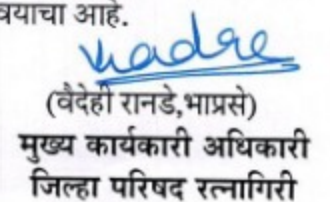 वयाचा आहे.
(वैदेही रानडे,भाप्रसे)
मुख्य कार्यकारी अधिकारी
जिल्हा परिषद रत्नागिरी